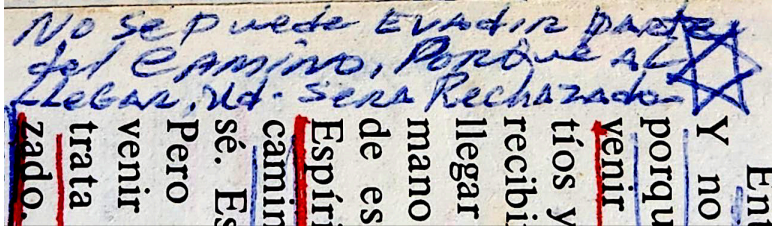 No se puede EVADIR parte
del CAMINO, PORque AL
LLEGAR, Ud. SERA Rechazado
Ent
Y no
porqu
venir
tíos y
recibi
llegar
mano
de es
Espíri
camin
sé. Es
Pero
venir
trata
zado.